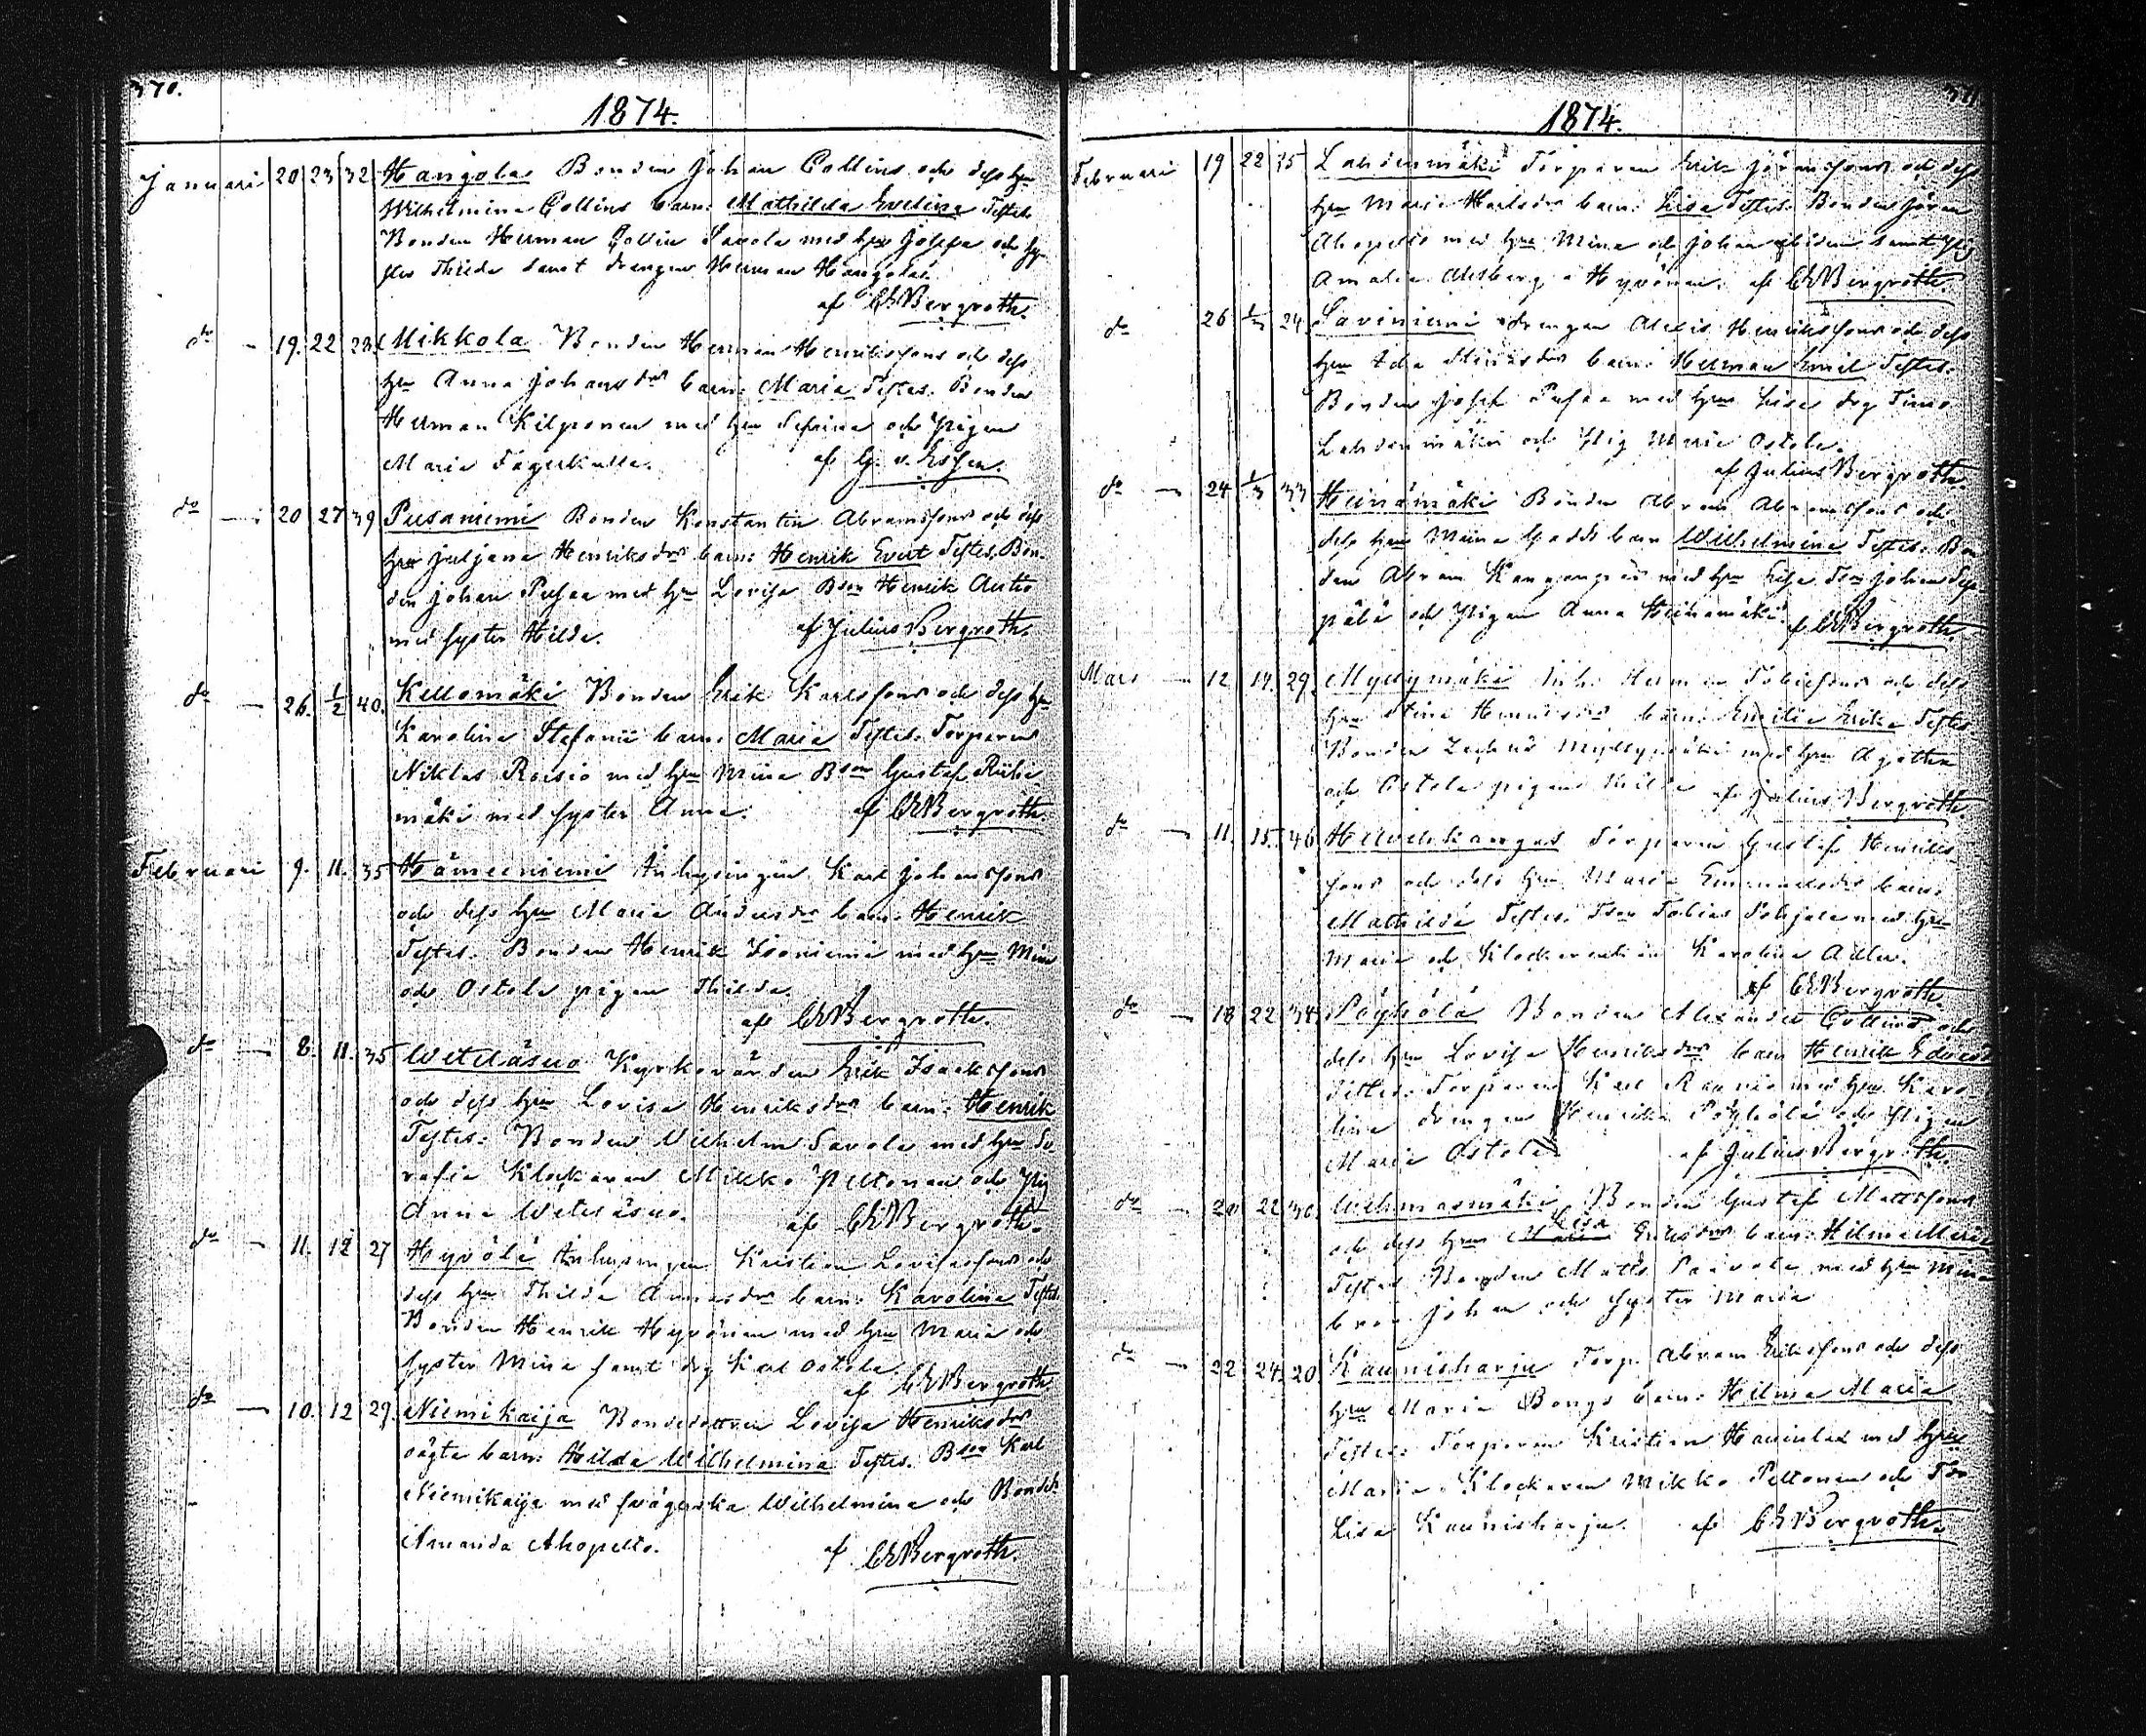 370.
1874.
Januari 20 23 32 Hangola Bonden Johan Collins och dess hu
Wilhelmina Collins barn: Mathilda Evelina Testes.
Bonden Herman Savola med hu Josefa och
Thilda samt drengen Herman Hangolas.
af Bergroth.
do 19. 22 23 Mikkola Bonden Herman Henriksson och dess
hu Anna Johansdr barn: Maria Testes. Bonden
Herman Kilponen med hu Sefrina och Pigan
Maria Fagerkulla. af G. v. Essen.
do 20 27 39 Pusaniemi Bonden Konstantin Abramsson och dess
hu Juljana Henriksdr barn: Henrik Evert Testes. Bon
den Johan Pusaa med hu Lovisa Bson Henrik Autio
med syster Hilda. af Julius Bergroth.
do 26. 1/2 40. Kellomäki Bonden Erik Karlsson och dess hu
Karolina Stefanii barn: Maria Testes. Torparen
Niklas Roisio med hu Miina Bson Gustaf Riihi
mäki med syster Anna. af Bergroth.
Februari 9. 11. 35 Hämeeniemi Inhysingen Karl Johansson
och dess hu Maria Andersdr barn: Henrik
Testes. Bonden Henrik Isoniemi med hu Mina
och Ostola pigan Thilda.
af Bergroth.
do 8. 11. 35 Weteläsuo Kyrkovärden Erik Isaksson
och dess hu Lovisa Henriksdr barn: Henrik
Testes: Bonden Wilhelm Savola med hu Se
rafia Klockaren Mikko Peltonen och Pig
Anna Weteläsuo. af Bergroth.
do 11. 12 27 Hyvölä Inhysingen Kristian Lovisasson och
dess hu Thilda Annasdr barn: Karolina Testes
Bonden Henrik Hyvönen med hu Maria och
syster Mina samt drg Karl Ostola.
af Bergroth
do 10. 12 29. Niemikaija Bondedottren Lovisa Henriksdr
oägta barn: Hilda Wilhelmina Testes. Bson Karl
Niemikaija med svägerska Wilhelmina och Bonded
Amanda Ahopelto. af Bergroth.
371
1874.
Februari 19 22 35 Lahdenmäki Torparen Erik Jöransson och dess
hu Maria Karlsdr barn: Lisa Testes. Bonden Jöran
Ahopelto med hu Mina och Johan samt Pig
Amalia Ahlberg Hyvönen. af Bergroth.
do 26 1/3 24 Saviniemi drengen Alexis Henriksson och dess
hu Eda barn: Herman Emil Testes.
Bonden Josef Pusaa med hu Lisa drg Timo
Lahdenmäki och Pig Maria Ostola.
af Julius Bergroth.
do 24 1/3 33 Heinämäki Bonden Abram Abramsson och
dess hu Miina Gadd barn Wilhelmina Testes. Bon
den Abram med hu Lisa Tson Johan Sep
pälä och Pigan Anna Heinämäki. af Bergroth.
Mars 12 14. 29. Myllymäki Inh. Herman Tobiasson och dess
hu Stina barn: Emilia Erika Testes
Bonden Myllymäki med hu Agatha
och Ostola pigan Hilda af Julius Bergroth.
do 11. 15. 46 Torparen Gustaf Henriks
son och dess hu Maria Emanuelsdr barn:
Mathilda Testes. Tson Tobias Pohjola med hu
Maria och Karolina Adler.
af Bergroth.
do 18 22 34 Pöyhölä Bonden Alexander Collins och
dess hu Lovisa Henriksdr barn Henrik Edvard
Testes. Torparen Karl Raunio med hu Karo
lina drengen Henrik Pöyhölä och Pigan
Maria Ostola. af Julius Bergroth.
do 20 22 30. Wehmasmäki Bonden Gustaf Mattsson
och dess hu Lisa Eriksdr barn: Hilma Maria
Testes Bonden Matts Paavola med hu Mina
bror Johan och syster Maria
do 22 24 20 Kaunisharju Torp. Abram Eriksson och dess
hu Maria Bongs barn: Hilma Maria
Testes. Torparen Kristian med hu
Maria Klockaren Mikko Peltonen och
Lisa Kaunisharju. af Bergroth.